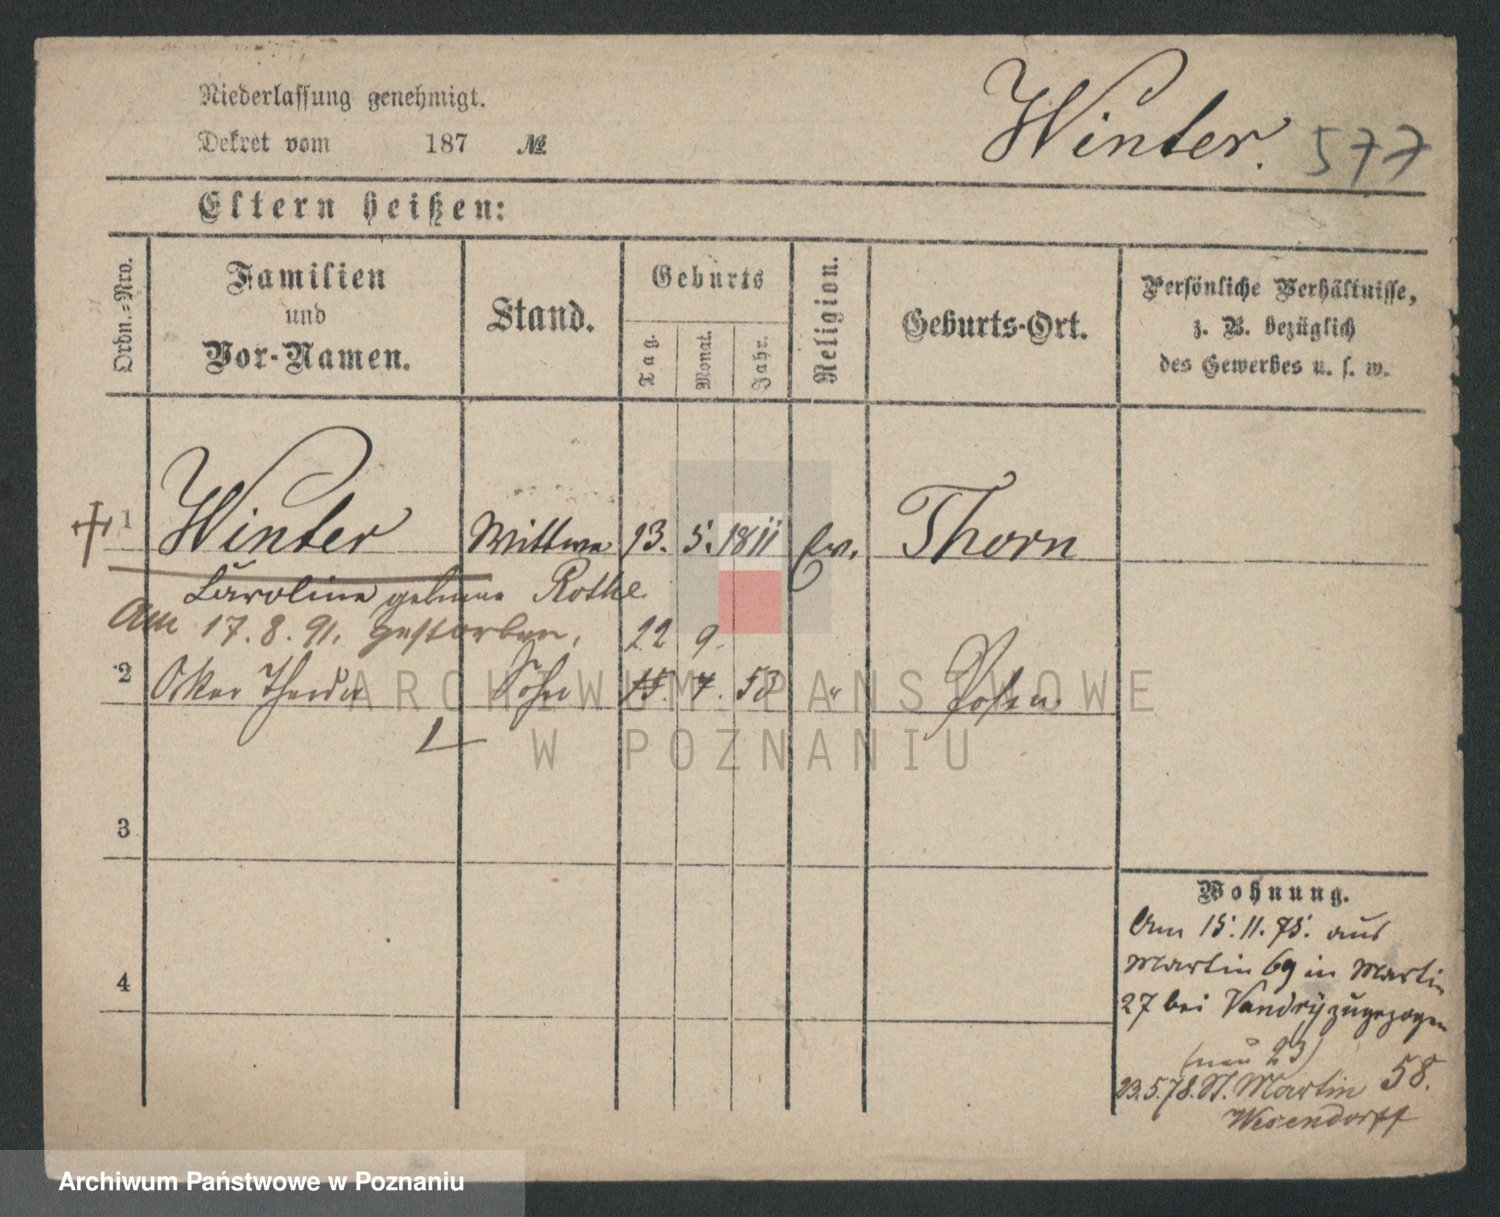 Niederlassung genehmigt.
Dekret vom 187 №
Winter. 577
Eltern heißen:
Ordn.-Nro.
Familien
und
Vor-Namen.
Stand.
Geburts
Tag.
Monat.
Jahr.
Religion.
Geburts-Ort.
Persönliche Verhältnisse,
z. B. bezüglich
des Gewerbes u. s. w.
1 Winter Wittwe 13. 5. 1811 Ev. Thorn
Caroline geborne Rothe
Am 17. 8. 91. gestorben, 22 9.
2 Oskar Sohn 15. 7. 53 " Posen.
3
4
Wohnung.
Am 15. 11. 75. aus
Martin 69 in Martin
27 bei zugezogen
(neu 23)
23.5.78. St. Martin 58.
Wesendorff
ARCHIWUM PAŃSTWOWE
W POZNANIU
Archiwum Państwowe w Poznaniu